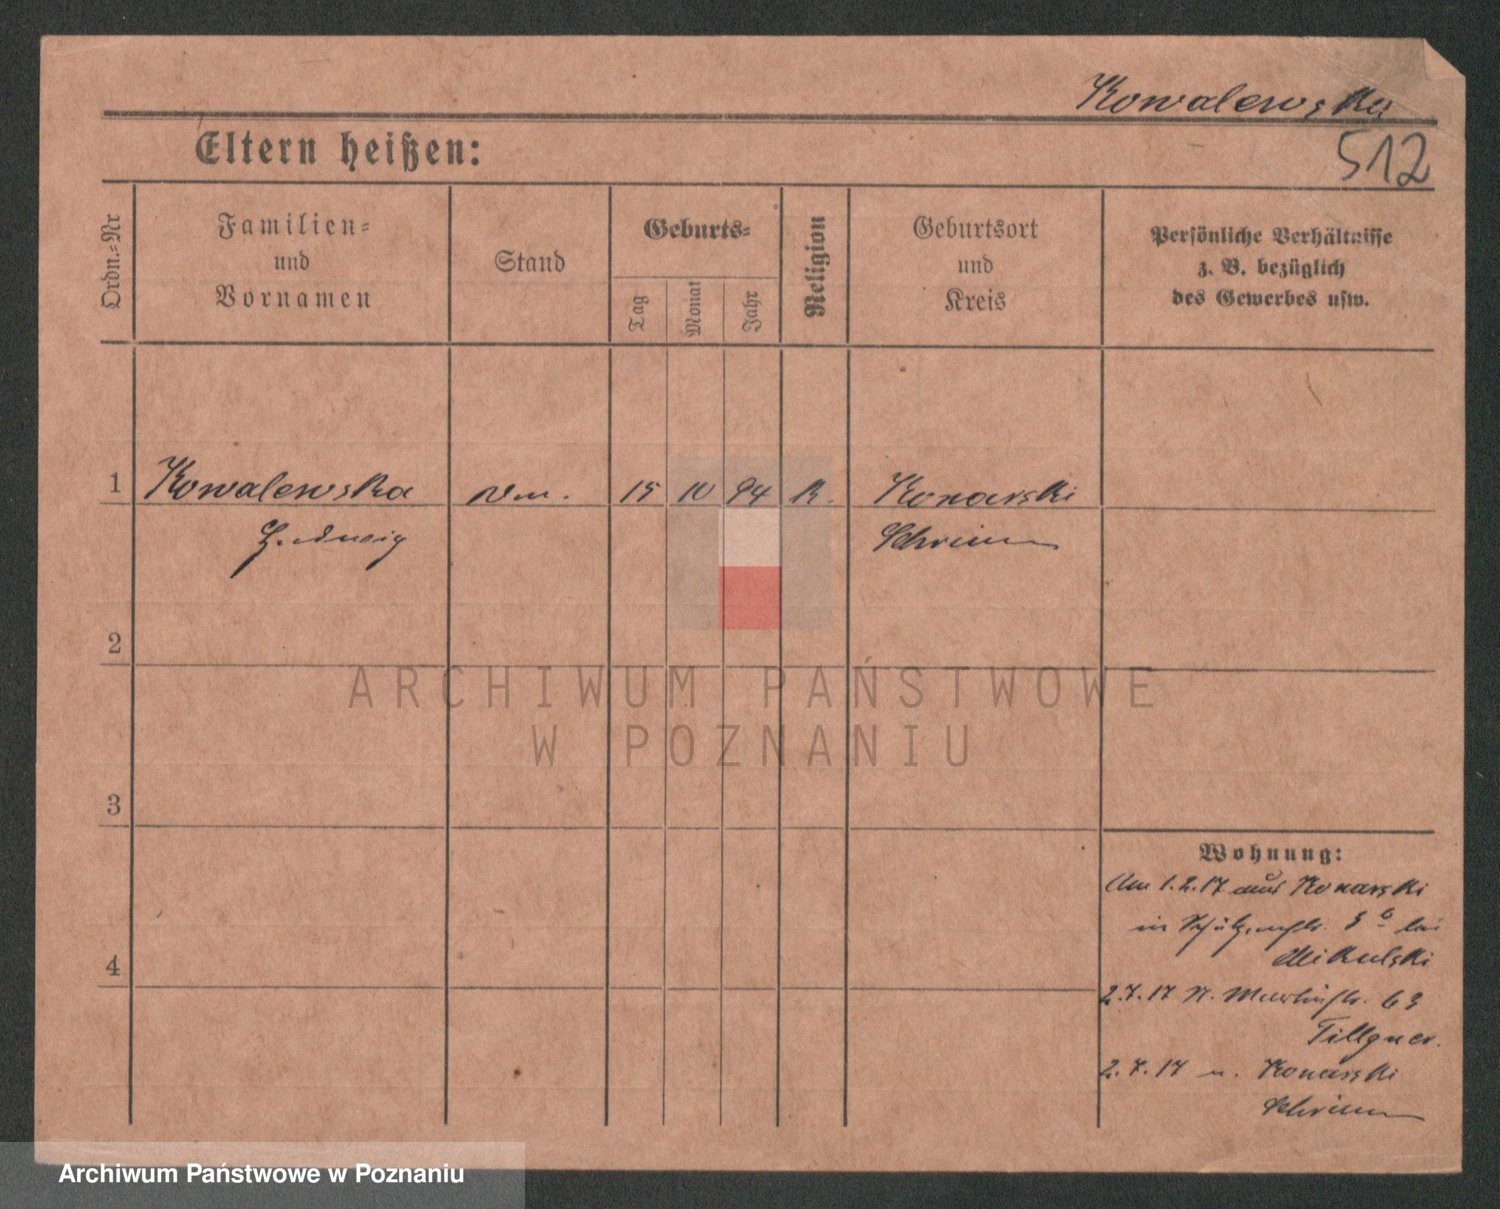 Kowalewska
Eltern heißen:
512
Ordn.-Nr
Familien-
und
Vornamen
Stand
Geburts-
Tag
Monat
Jahr
Religion
Geburtsort
und
Kreis
Persönliche Verhältnisse
z. B. bezüglich
des Gewerbes usw.
1 Kowalewska 15 10 94 K. Konarski
Hedwig Schrimm
2
3
4
ARCHIWUM PAŃSTWOWE
W POZNANIU
Wohnung:
Am 1.2.17 aus Konarski
in Schützenstr. bei
Mikulski
2.7.17 Martinstr. 63
Tillgner.
2.7.17 n. Konarski
Schrimm
Archiwum Państwowe w Poznaniu